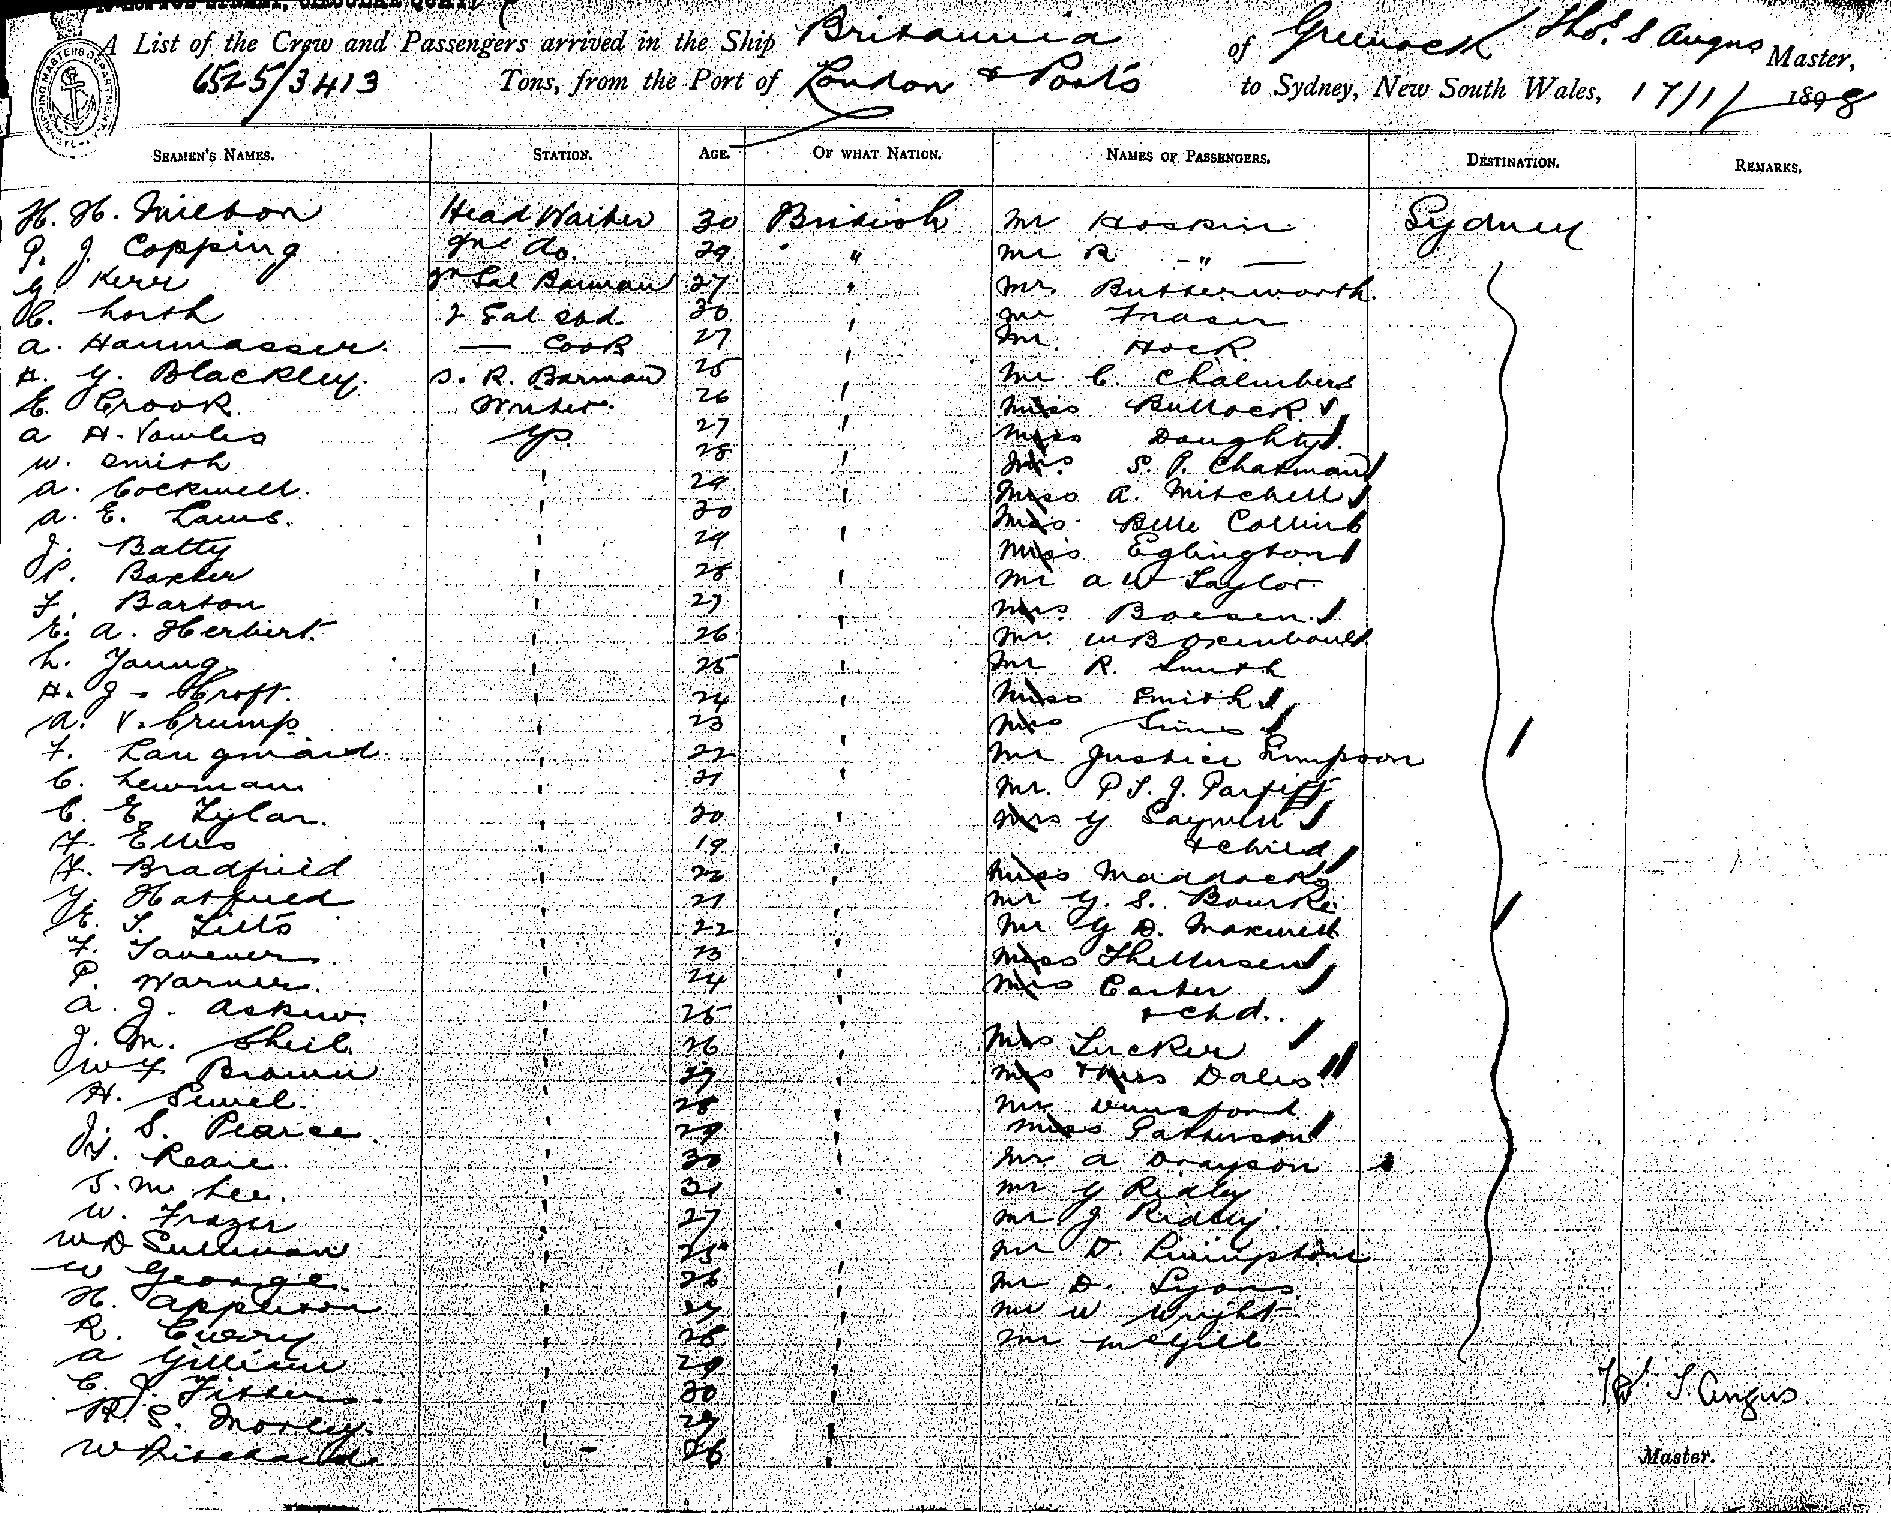 A List of the Crew and Passengers arrived in the Ship Britannia of Greenock Thos. S Angus Master,
6525/3413 Tons, from the Port of London & Ports to Sydney, New South Wales, 17/1/ 1898
SEAMEN'S NAMES. STATION. AGE. OF WHAT NATION. NAMES OF PASSENGERS. DESTINATION. REMARKS.
H. H. Milton Head Waiter 30 British Mr Hoskin Sydney
P. J. Copping do. 29 " Mr R - " -
G Kerr Sal Barman 27 " Mr Butterworth
C. North 2 Sal 30 " Mr Fraser
A. Hanmasser. — Cook 27 " Mr. Hock
H. G. Blackley. S. R. Barman 25 " Mr C. Chalmbers
E. Crook Writer. 26 " Miss Bullock
A H. Vowles 27 " Miss Doughty
W. Smith " 28 " Mrs. S. P. Chapman
A. Cockwell. " 29 " Miss A. Mitchell
A. E. Laws. " 30 " Miss Belle Collins
J. Batty " 29 " Miss Eglington
P. Baxter " 28 " Mr A W Taylor
F. Barton " 27 " Mrs. Boesen
E. A. Herbert. " 26 " Mr. W B
L. Young " 25 " Mr R. Smith
H. J. Croft. " 24 " Miss Smith
A. V. Crump " 23 " Mrs Sims
F. Langmaid " 22 " Mr Justice Simpson
C. Newman " 21 " Mr. P S. J. Parfitt
C. E. Tylar. " 20 " Mrs G Saywell
F. Elles " 19 " & child
F. Bradfield " 20 " Miss Maddocks
G. Hatfield " 21 " Mr G. S. Bourke
E. T. Tilts " 22 " Mr G D. Maxwell
F. Taveners " 23 " Miss Thellusen
P. Warner. " 24 " Mrs Carter
A. J. Askew. " 25 " & chd.
J. M. Sheil. " 26 " Mrs Tucker
W F Brown " 27 " Mrs & Miss Dales
H. Sewel. " 28 " Mr Dunsford
J. S. Pearce " 29 " Miss Patterson
Reare. " 30 " Mr A Drayson
S. M. Lee. " 31 " Mr G Ridley
W. Frazer " 27 " Mr J Ridley
W D Sullivan " 25 " Mr D. Livingstone
W George. " 26 " Mr D. Lyons
H. Appleton " 27 " Mr W Wright
R. Ewory " 28 " Mr McGill
A Gilliam " 29 "
C. J. Titters. " 30 " Thos. S. Angus.
R S. Morley. " 29 "
W Pritchard. " 26 " Master.